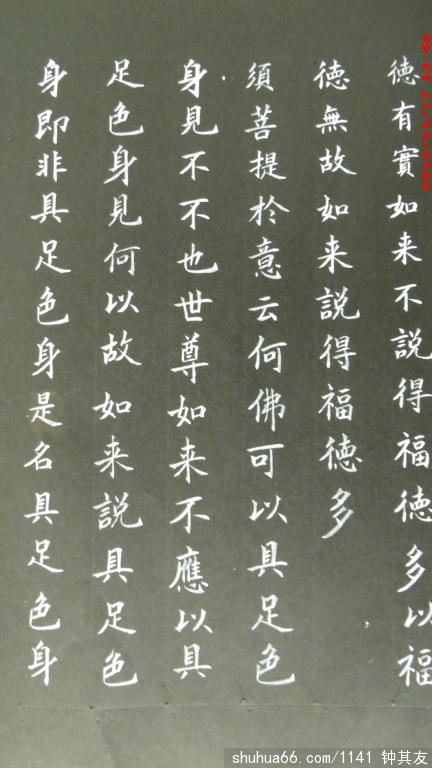 德有實如来不說得福德多以福
德無故如来說得福德多
須菩提於意云何佛可以具足色
身見不不也世尊如来不應以具
足色身見何以故如来說具足色
身即非具足色身是名具足色身
shuhua66.com/1141 钟其友